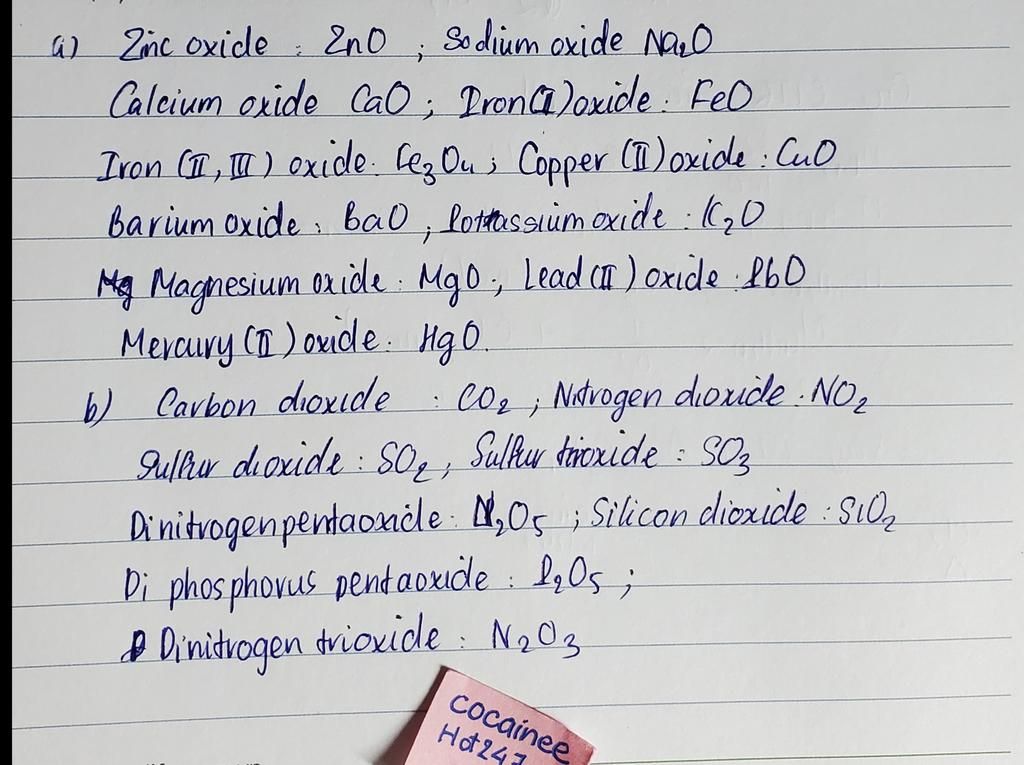 a) Zinc oxide : ZnO ; Sodium oxide Na₂O
Calcium oxide CaO ; Iron(II) oxide : FeO
Iron (II, III) oxide : Fe₃O₄ ; Copper (II) oxide : CuO
Barium oxide : BaO , Pottassium oxide : K₂O
Mg Magnesium oxide : MgO ; Lead (II) oxide : PbO
Mercury (II) oxide : HgO.
b) Carbon dioxide : CO₂ ; Nitrogen dioxide : NO₂
Sulfur dioxide : SO₂ , Sulfur trioxide : SO₃
Dinitrogen pentaoxide : N₂O₅ ; Silicon dioxide : SiO₂
Di phosphorus pentaoxide : P₂O₅ ;
Dinitrogen trioxide : N₂O₃
cocainee
Hot247